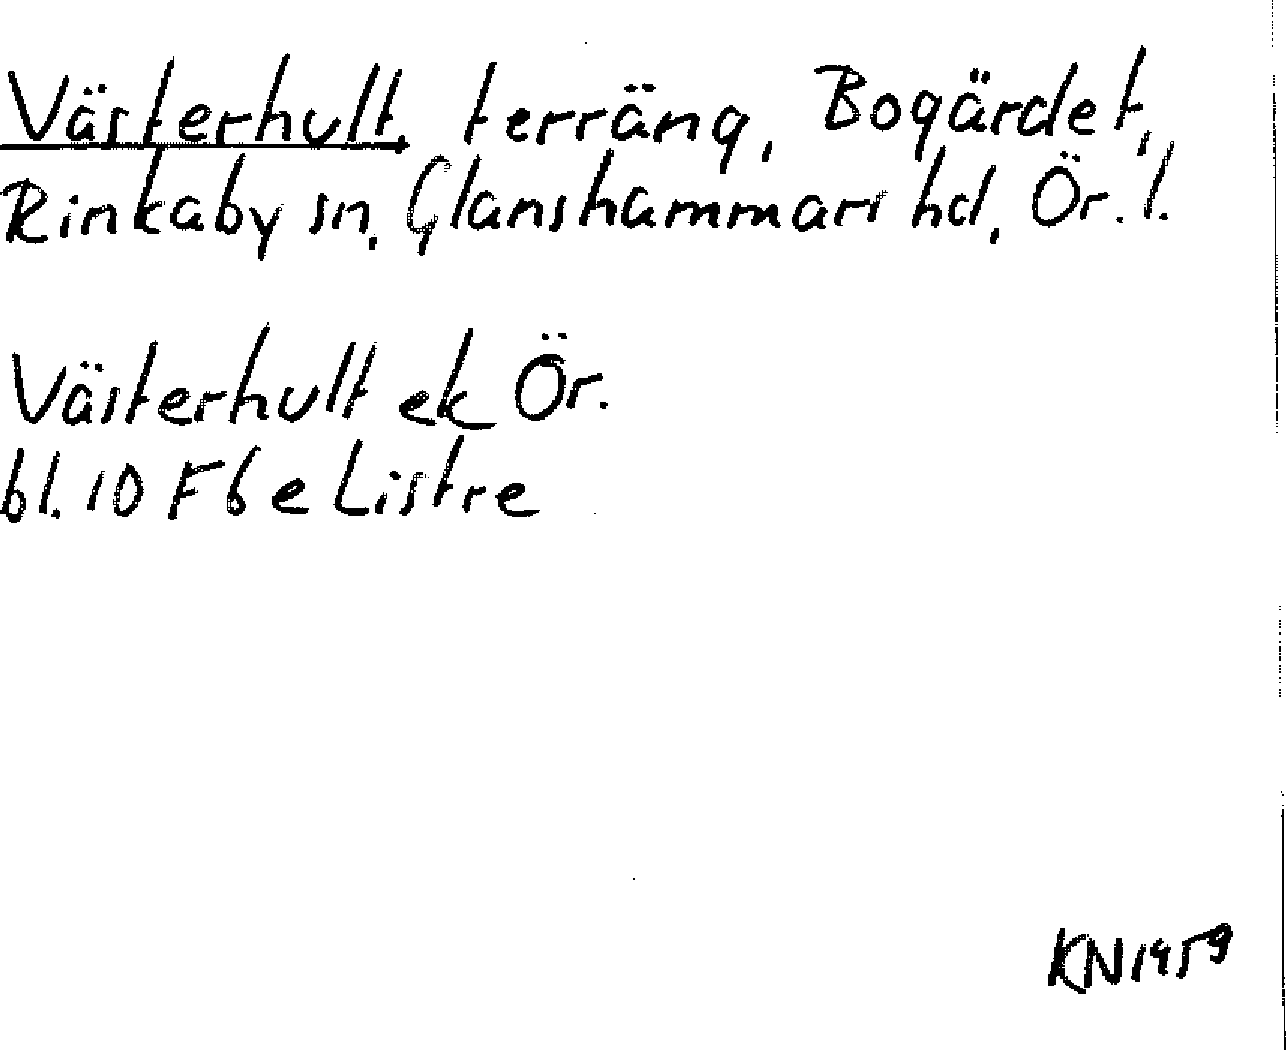 Västerhult, terräng, Bogärdet,
Rinkaby sn, Glanshammars hd, Ör. l.
Västerhult ek Ör.
bl. 10 F 6 e Listre
KN 1959